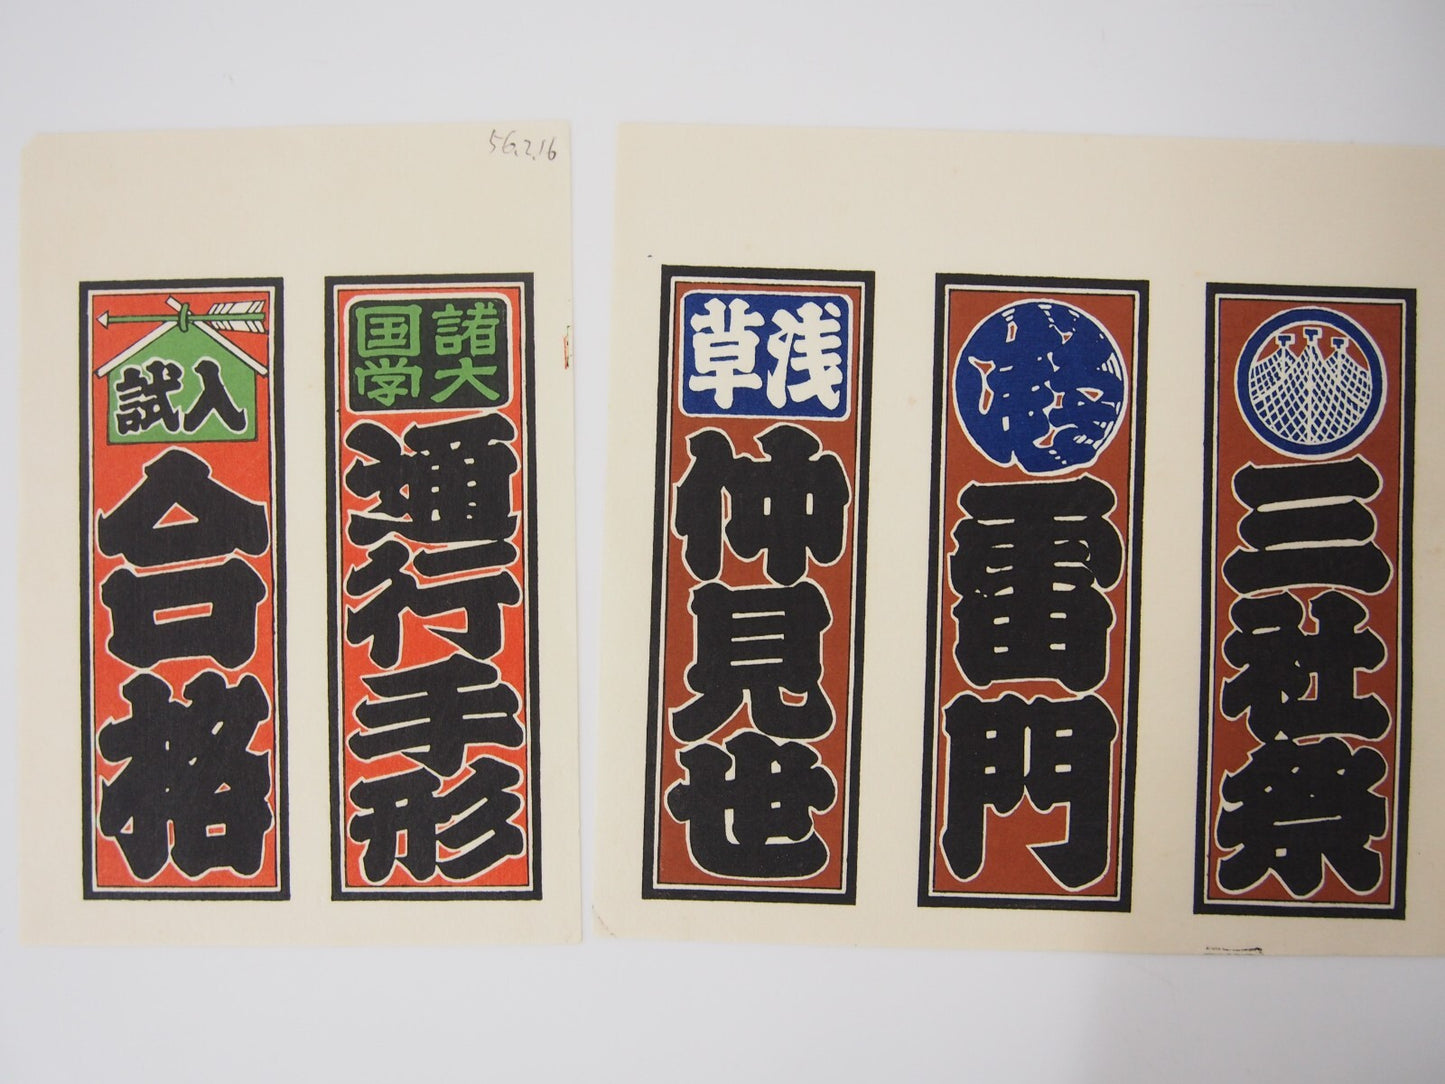 56.2.16
入試
合格
諸国
大学
通行手形
浅草
仲見世
雷門
三社祭